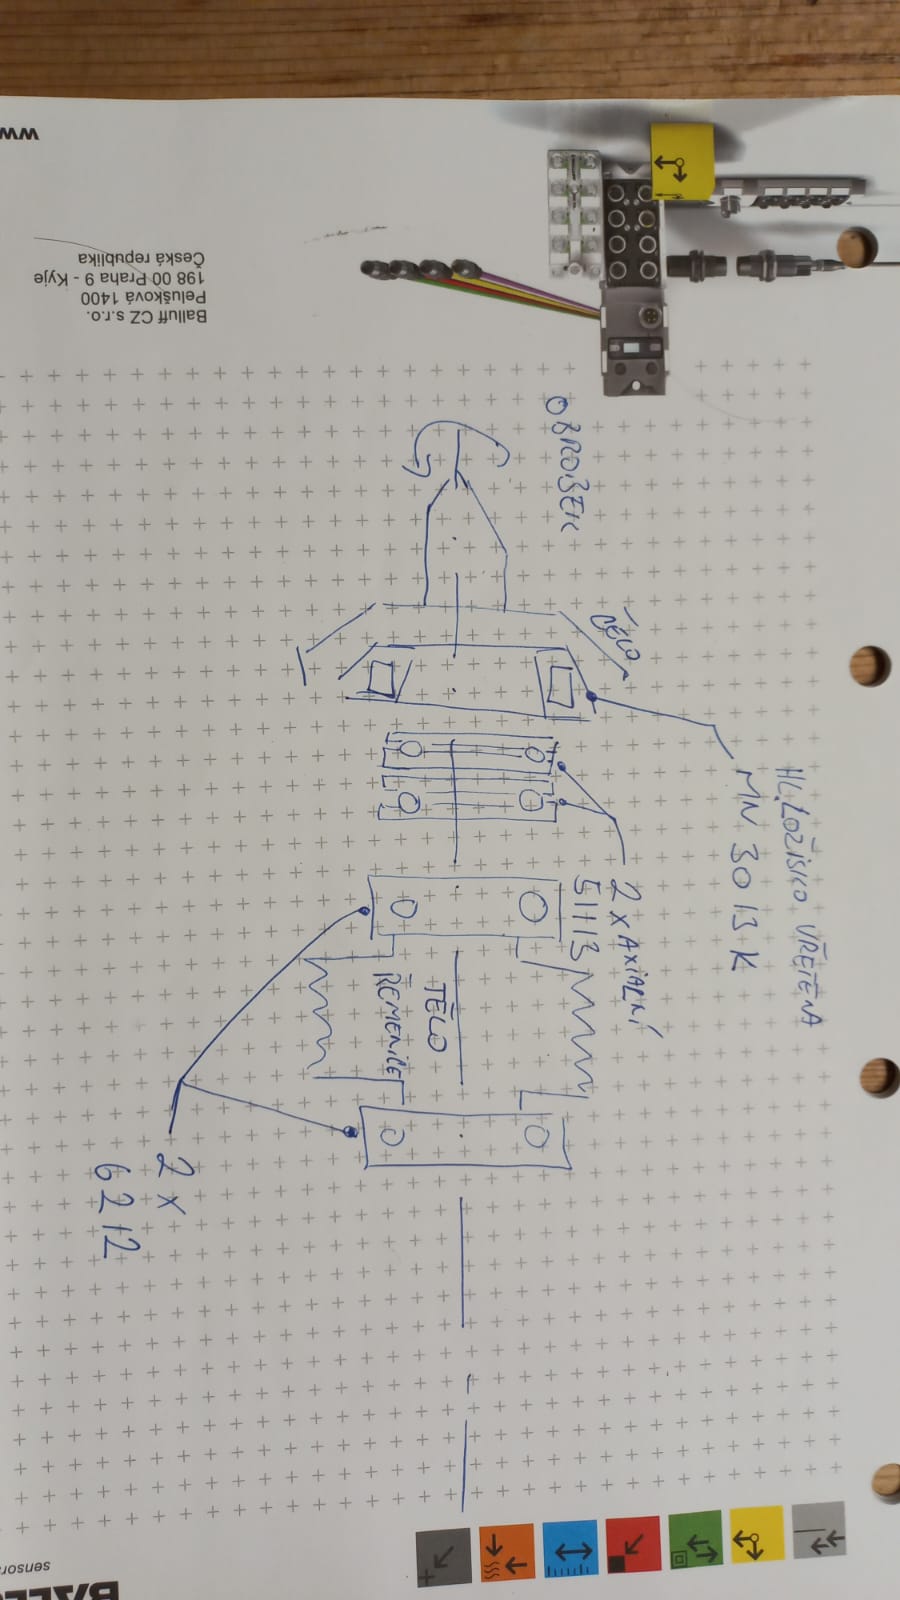 OBROBEK
ČELO
HL. LOŽISKO VŘETENA
NN 3013 K
2 x AXIÁLNÍ
51113
TĚLO
ŘEMENICE
2 x
6212
Balluff CZ s.r.o.
Pelušková 1400
198 00 Praha 9 - Kyje
Česká republika
www